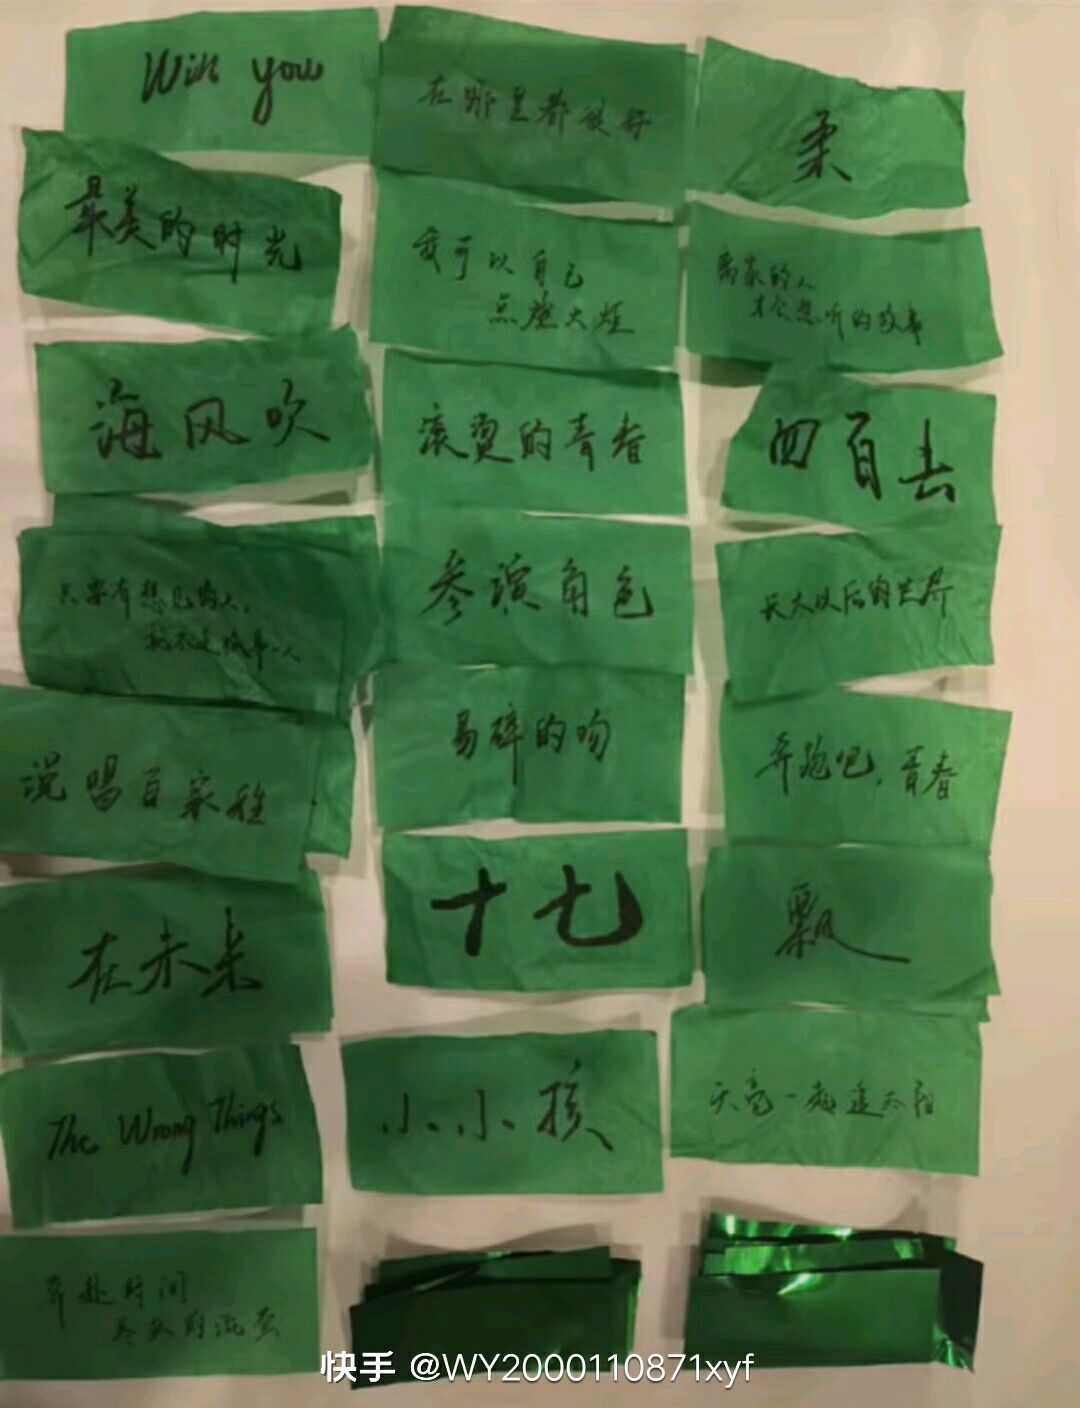 Will you
在哪里都很好
柔
最美的时光
我可以自己
点燃火炬
离家的人
才会想听的故事
海风吹
滚烫的青春
四百击
只要有想见的人,
就不是孤身一人
参演角色
长大以后的世界
说唱百家姓
易碎的吻
奔跑吧,青春
在未来
十七
飘
The Wrong Things
小小孩
天亮一起追太阳
奔赴时间
尽头的流萤
快手 @WY2000110871xyf